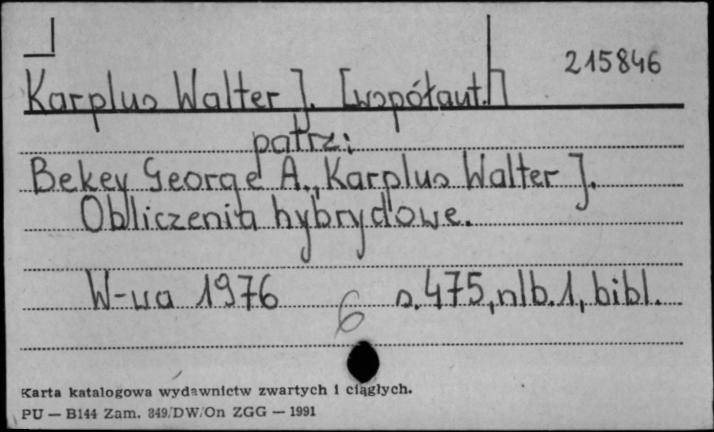 215846
Karplus Walter J. [współaut.]
patrz:
Bekey George A., Karplus Walter J.
Obliczenia hybrydowe.
W-wa 1976 s. 475, nlb. 1, bibl.
6
Karta katalogowa wydawnictw zwartych i ciągłych.
PU — B144 Zam. 849/DW/On ZGG — 1991